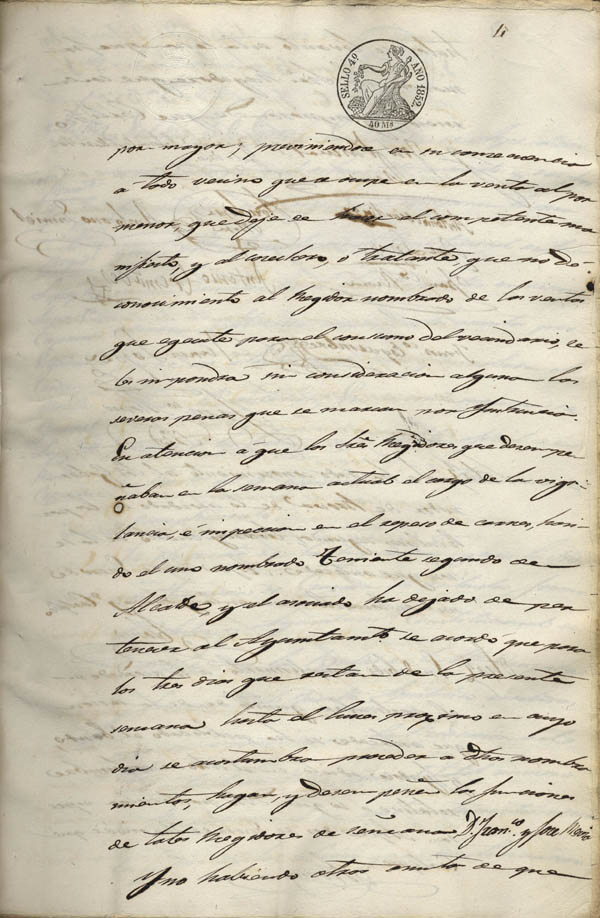 11
SELLO 4º AÑO 1859.
40 Ms
por mayor; previniendose en su consecuencia
a todo vecino que se ocupe en la venta al por
menor, que deje el competente ma
nifiesto, y al cosechero, o tratante que no de
conocimiento al Regidor nombrado de las ventas
que egecute para el consumo del vecindario, se
les impondrá sin consideracion alguna las
severas penas que se marcan por Instruccion.
En atencion á que los Sres. Regidores que desempe
ñaban en la semana actual el cargo de la vigi
lancia, é inspeccion en el repeso de carnes, havi
do el uno nombrado Teniente segundo de
Alcalde, y el asociado ha dejado de per
tenecer al Ayuntamto. se acordó que para
los tres dias que restan de la presente
semana hasta el lunes proximo en cuyo
dia se acostumbra proceder a dhos nombra
mientos, hagan, y desempeñen las funciones
de tales Regidores de semana Dn. Franco. y Jose
Y no habiendo otros de que